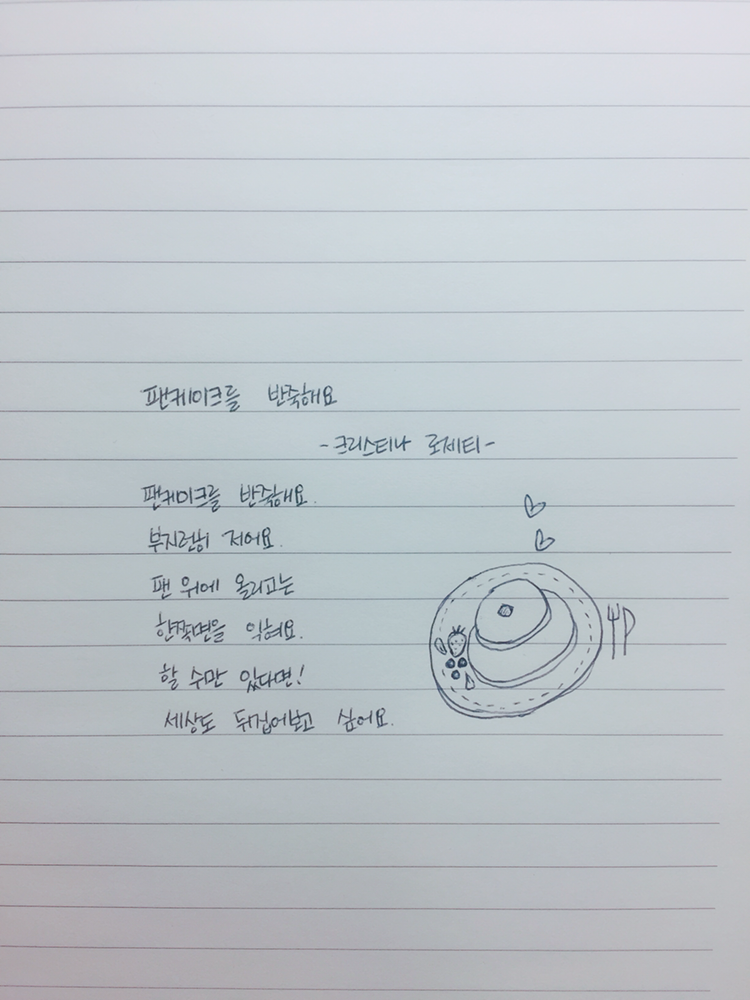 팬케이크를 반죽해요
-크리스티나 로제티-
팬케이크를 반죽해요.
부지런히 저어요.
팬 위에 올리고는
한쪽면을 익혀요.
할 수만 있다면!
세상도 뒤집어보고 싶어요.